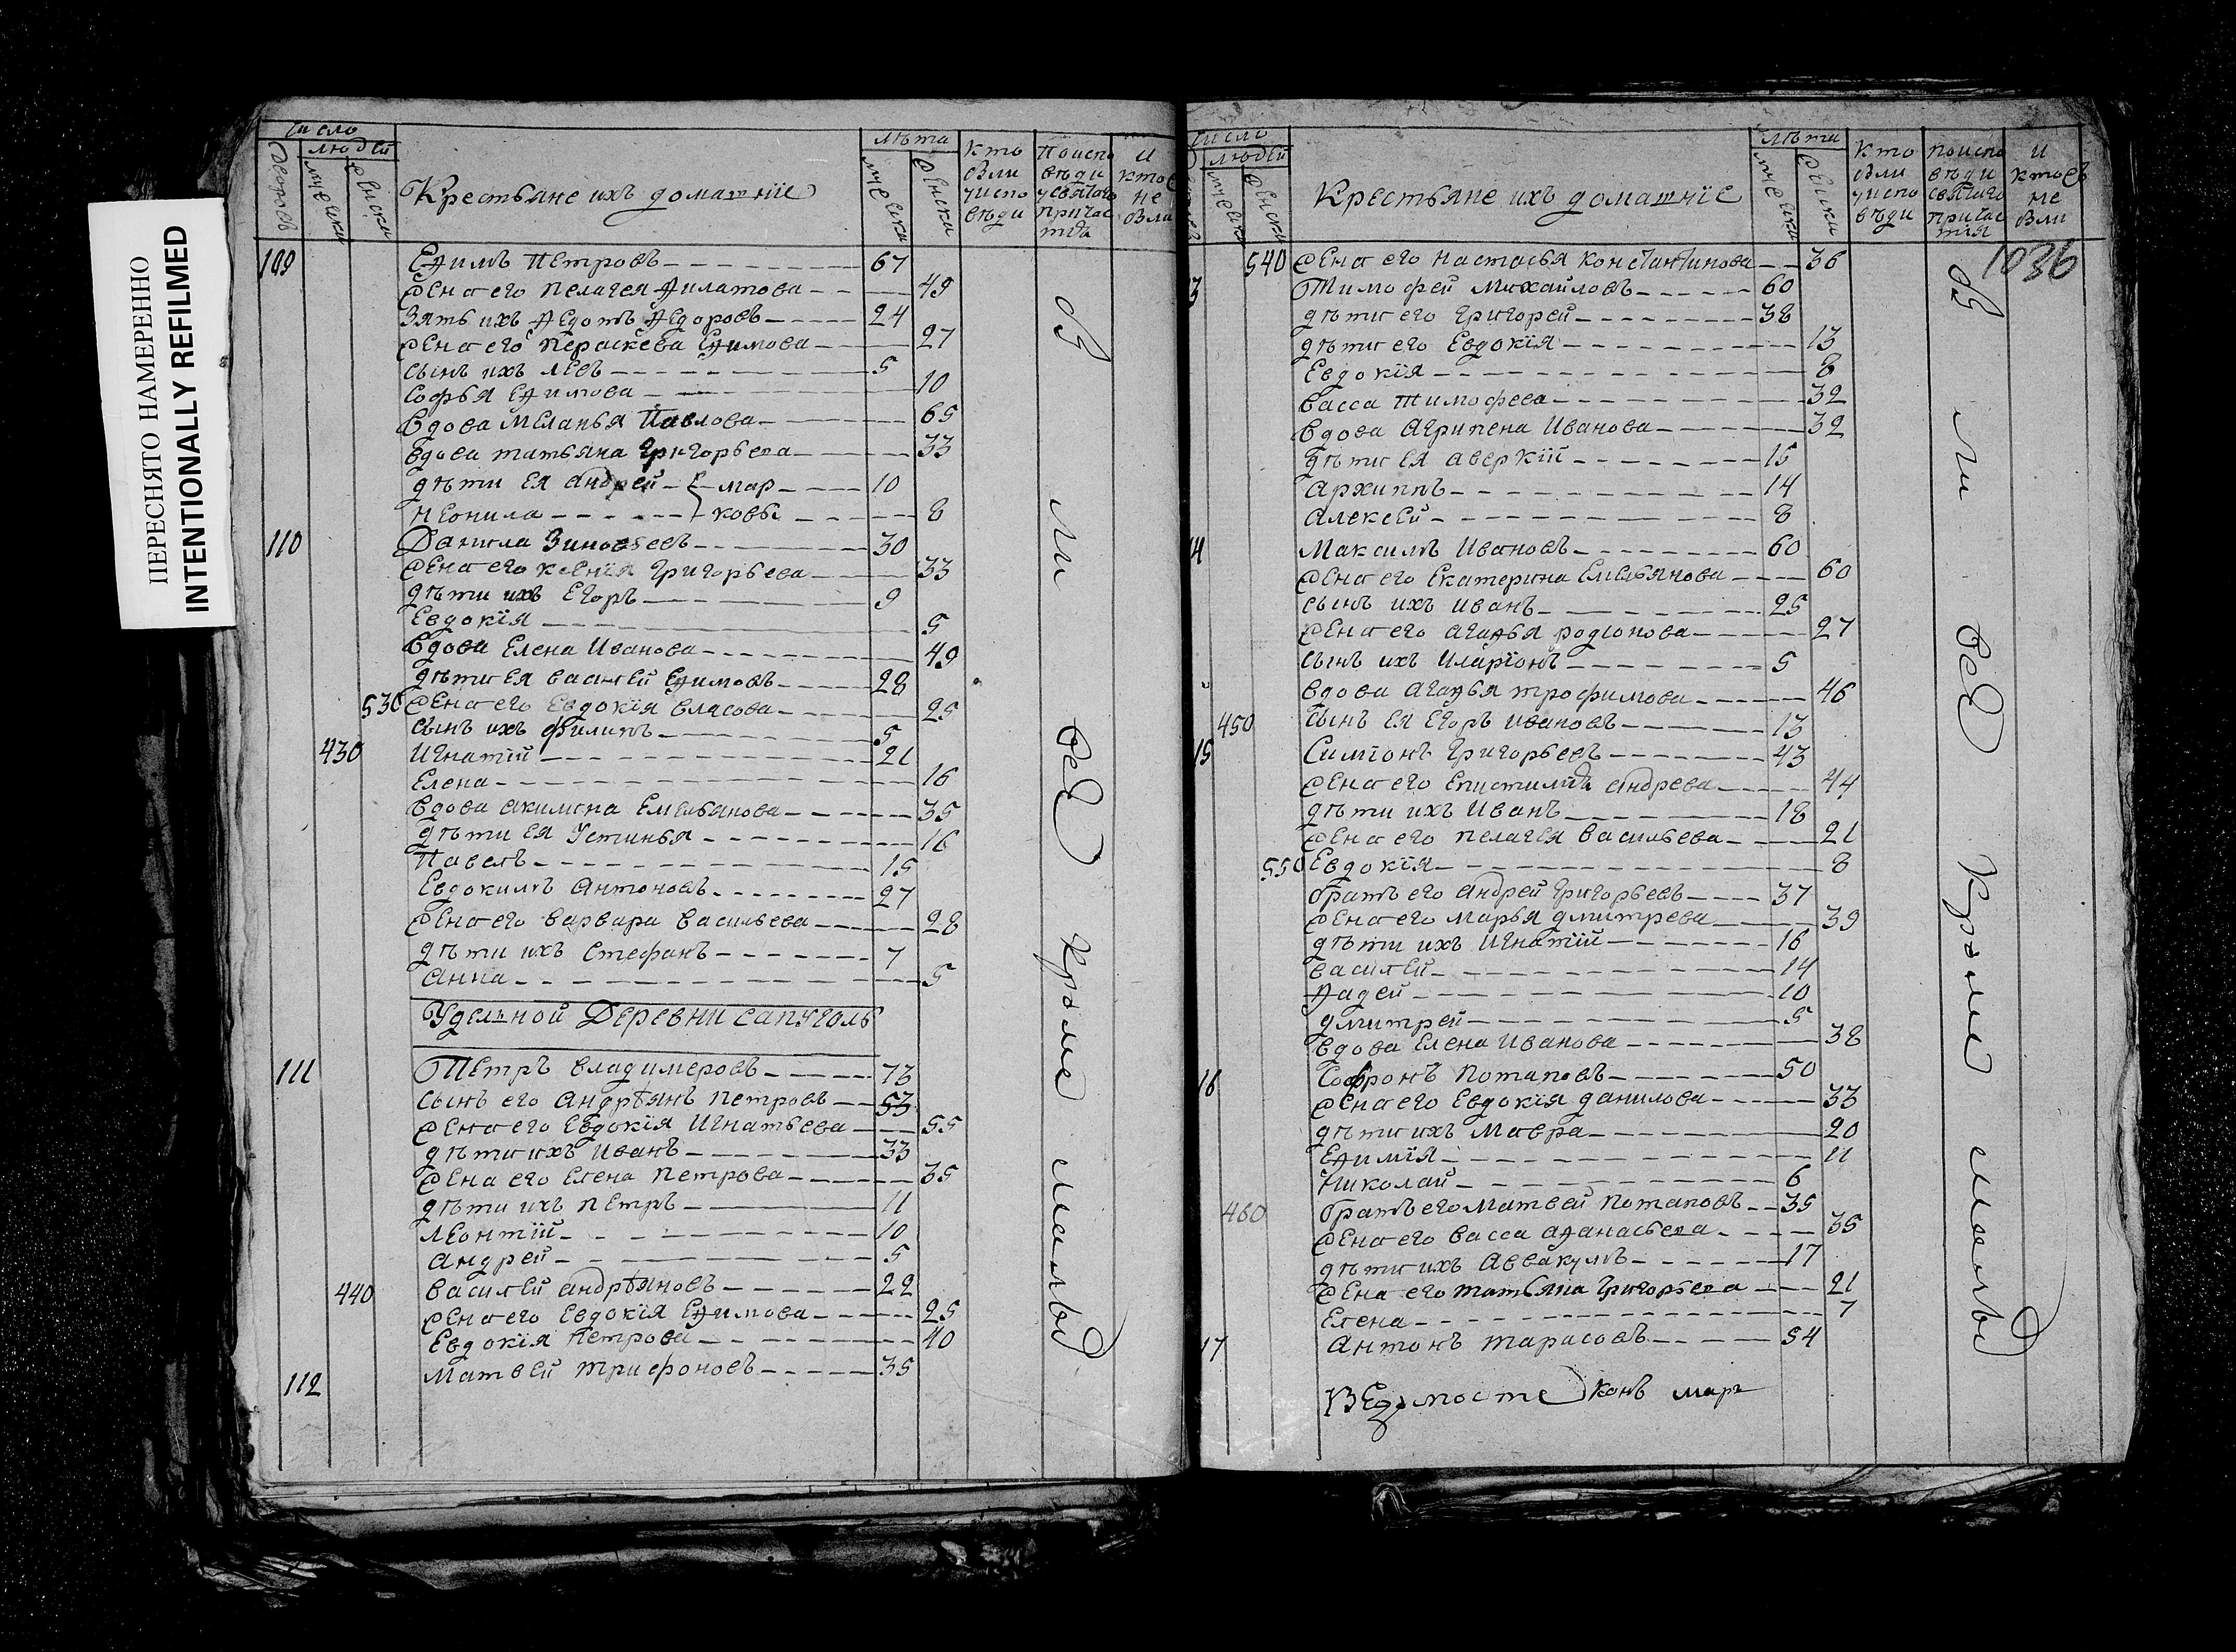 ПЕРЕСНЯТО НАМЕРЕННО
INTENTIONALLY REFILMED
число
людей
дворовъ
мужеска
женска
Крестьяне ихъ домашнїе
лѣта
мужеска
женска
кто были у исповѣди
По исповѣди и у святаго причастїя
и кто не были
109 Еѳимъ Петровъ 67
жена его Пелагея Ѳилатова 49
Зять ихъ Ѳедотъ Ѳедоровъ 24
жена его Пераскева Еѳимова 27
сынъ ихъ Левъ 5
Софья Еѳимова 10
вдова Меланья Павлова 65
вдова татьяна Григорьева 33
дѣти ея Андрей мар 10
неонила ковы 8
110 Данила Зиновьевъ 30
жена его ксенїя Григорьева 33
дѣти ихъ Егоръ 9
Евдокїя 5
вдова Елена Иванова 49
дѣти ея василей Еѳимовъ 28
530 жена его Евдокїя власова 25
сынъ ихъ филипъ 5
430 Игнатїй 21
Елена 16
вдова акилина Емельянова 35
дѣти ея Устинья 16
Павелъ 15
Евдокимъ Антоновъ 27
жена его варвара васильева 28
дѣти ихъ Стефанъ 7
Анна 5
Удельной Деревни сапуголь
111 Петръ владимеровъ 73
сынъ его Андрѣянъ Петровъ 53
жена его Евдокїя Игнатьева 55
дѣти ихъ Иванъ 33
жена его Елена Петрова 35
дѣти ихъ Петръ 11
Леонтїй 10
андрей 5
440 василей андрѣяновъ 22
жена его Евдокїя Еѳимова 25
Евдокїя Петрова 40
112 Матвей трифоновъ 35
бы ли все кроме малы
число
людей
мужеска
женска
Крестьяне ихъ домашнїе
лѣта
мужеска
женска
кто были у исповѣди
по исповѣди и святаго причастїя
и кто не были
1036
540 жена его настасья константинова 36
3 Тимофей Михайловъ 60
дѣти его Григорей 38
дѣти его Евдокїя 13
Евдокїя 8
васса тимофеева 32
вдова Агрипена Иванова 32
дѣти ея аверкїй 15
Архиппъ 14
Алексей 8
14 Максимъ Ивановъ 60
жена его Екатерина Емельянова 60
сынъ ихъ иванъ 25
жена его агаѳья родїонова 27
сынъ ихъ Иларїонъ 5
вдова агаѳья трофимова 46
450 сынъ ея Егоръ ивановъ 13
15 Симїонъ Григорьевъ 43
жена его Епистимїя андреева 44
дѣти ихъ Иванъ 18
жена его пелагея васильева 21
550 Евдокїя 8
братъ его андрей Григорьевъ 37
жена его Марья дмитрева 39
дѣти ихъ Игнатїй 16
василей 14
Ѳадей 10
дмитрей 5
вдова Елена Иванова 38
16 Софронъ Потаповъ 50
жена его Евдокїя данилова 33
дѣти ихъ Мавра 20
Еѳимїя 11
Николай 6
460 братъ его Матвей Потаповъ 35
жена его васса аѳанасьева 35
дѣти ихъ Аввакумъ 17
жена его татьяна Григорьева 21
Елена 7
17 Антонъ тарасовъ 54
бы ли все кроме малы